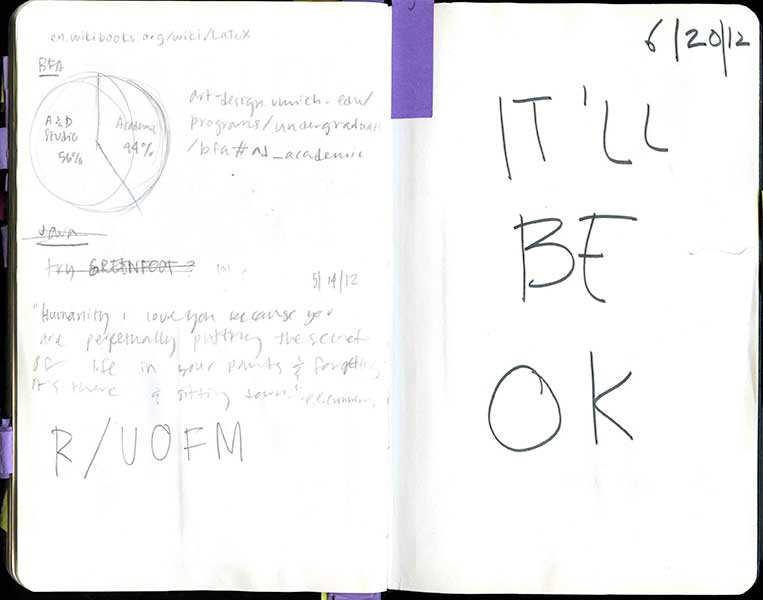 en.wikibooks.org/wiki/LaTeX
BFA
A&D
Studio
56%
Academic
44%
art-design.umich.edu/
programs/undergraduate
/bfa#ad_academic
Java
try GREENFOOT?
5/14/12
"Humanity i love you because you
are perpetually putting the secret
of life in your pants & forgetting
it's there & sitting down" e.e. cummings
R/UOFM
6/20/12
IT'LL
BE
OK